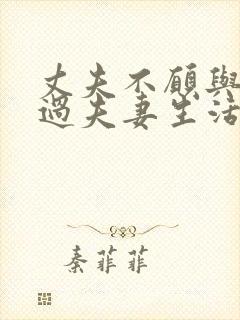 丈夫不願與
過夫妻生活
秦菲菲